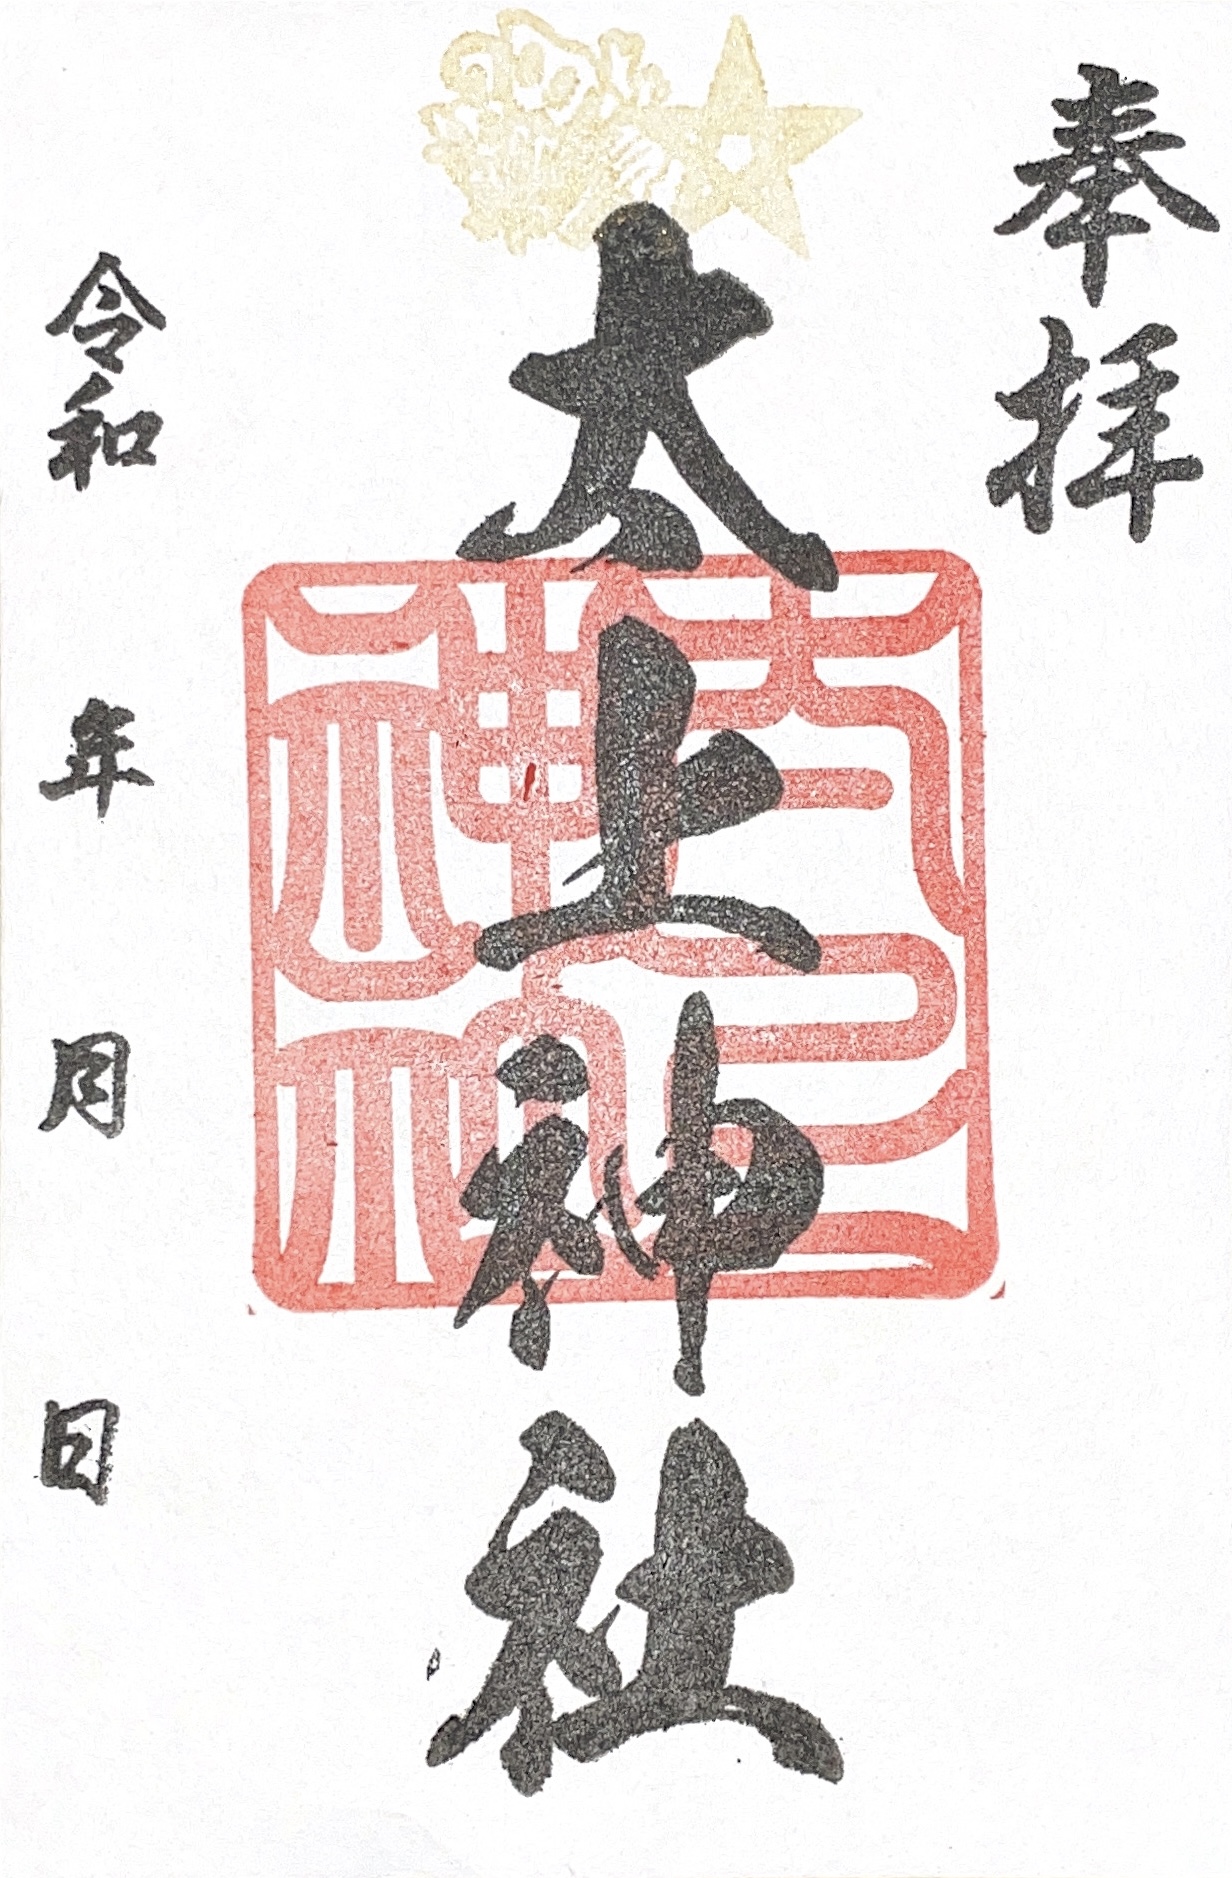 奉拝
太上神社
太上神社
令和 年 月 日